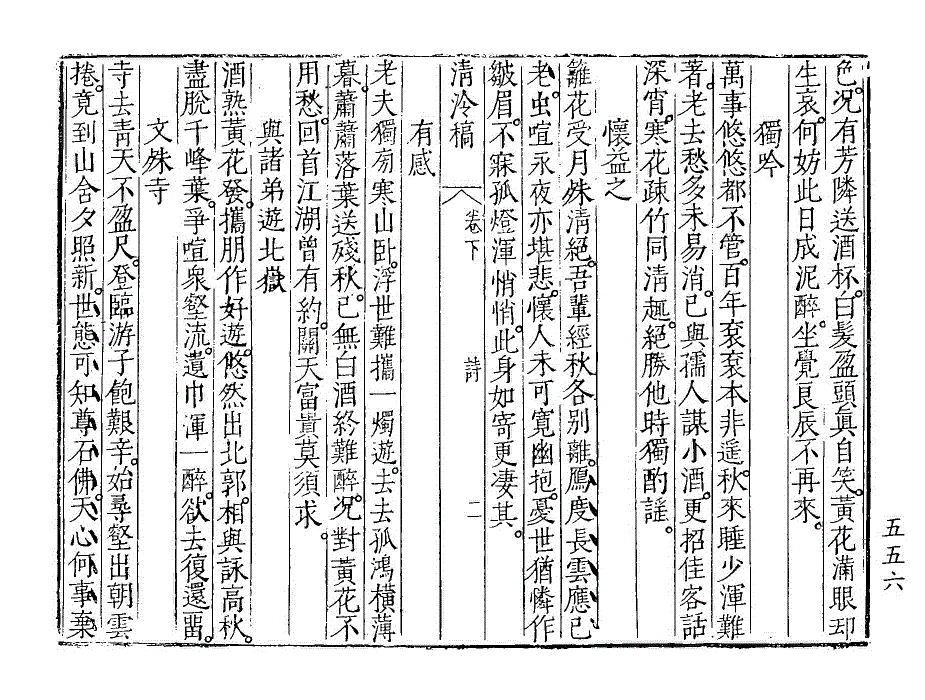 色。况有芳隣送酒杯。白髮盈頭眞自笑。黃花滿眼却
生哀。何妨此日成泥醉。坐覺良辰不再來。
獨吟
萬事悠悠都不管。百年袞袞本非遥。秋來睡少渾難
著。老去愁多未易消。已與孺人謀小酒。更招佳客話
深宵。寒花疎竹同淸趣。絕勝他時獨酌謠。
懷益之
籬花受月殊淸絕。吾輩經秋各別離。鴈度長雲應已
老。虫喧永夜亦堪悲。懷人未可寬幽抱。憂世猶憐作
皺眉。不寐孤燈渾悄悄。此身如寄更凄其。
淸泠稿 卷下 詩 二
有感
老夫獨
寒山臥。浮世難攜一燭遊。去去孤鴻橫薄
暮。蕭蕭落葉送殘秋。已無白酒終難醉。况對黃花不
用愁。回首江湖曾有約。關天富貴莫須求。
與諸弟遊北嶽
酒熟黃花發。攜朋作好遊。悠然出北郭。相與詠高秋。
盡脫千峰葉。爭喧衆壑流。遺巾渾一醉。欲去復還留。
文殊寺
寺去靑天不盈尺。登臨游子飽艱辛。始尋壑出朝雲
捲。竟到山含夕照新。世態可知尊石佛。天心何事棄
五五六